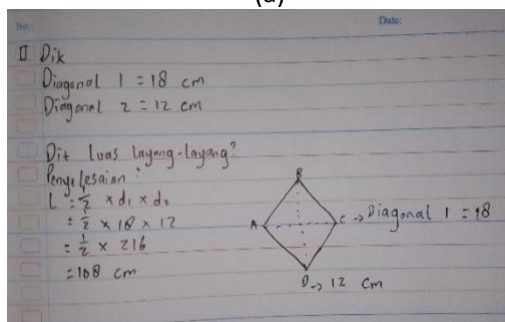 (a)
No.:
Date:
II Dik
Diagonal 1 = 18 cm
Diagonal 2 = 12 cm
Dit luas layang-layang?
Penyelesaian :
L = 1/2 x d1 x d2
= 1/2 x 18 x 12
= 1/2 x 216
= 108 cm
B
A
C -> Diagonal 1 = 18
D -> 12 cm